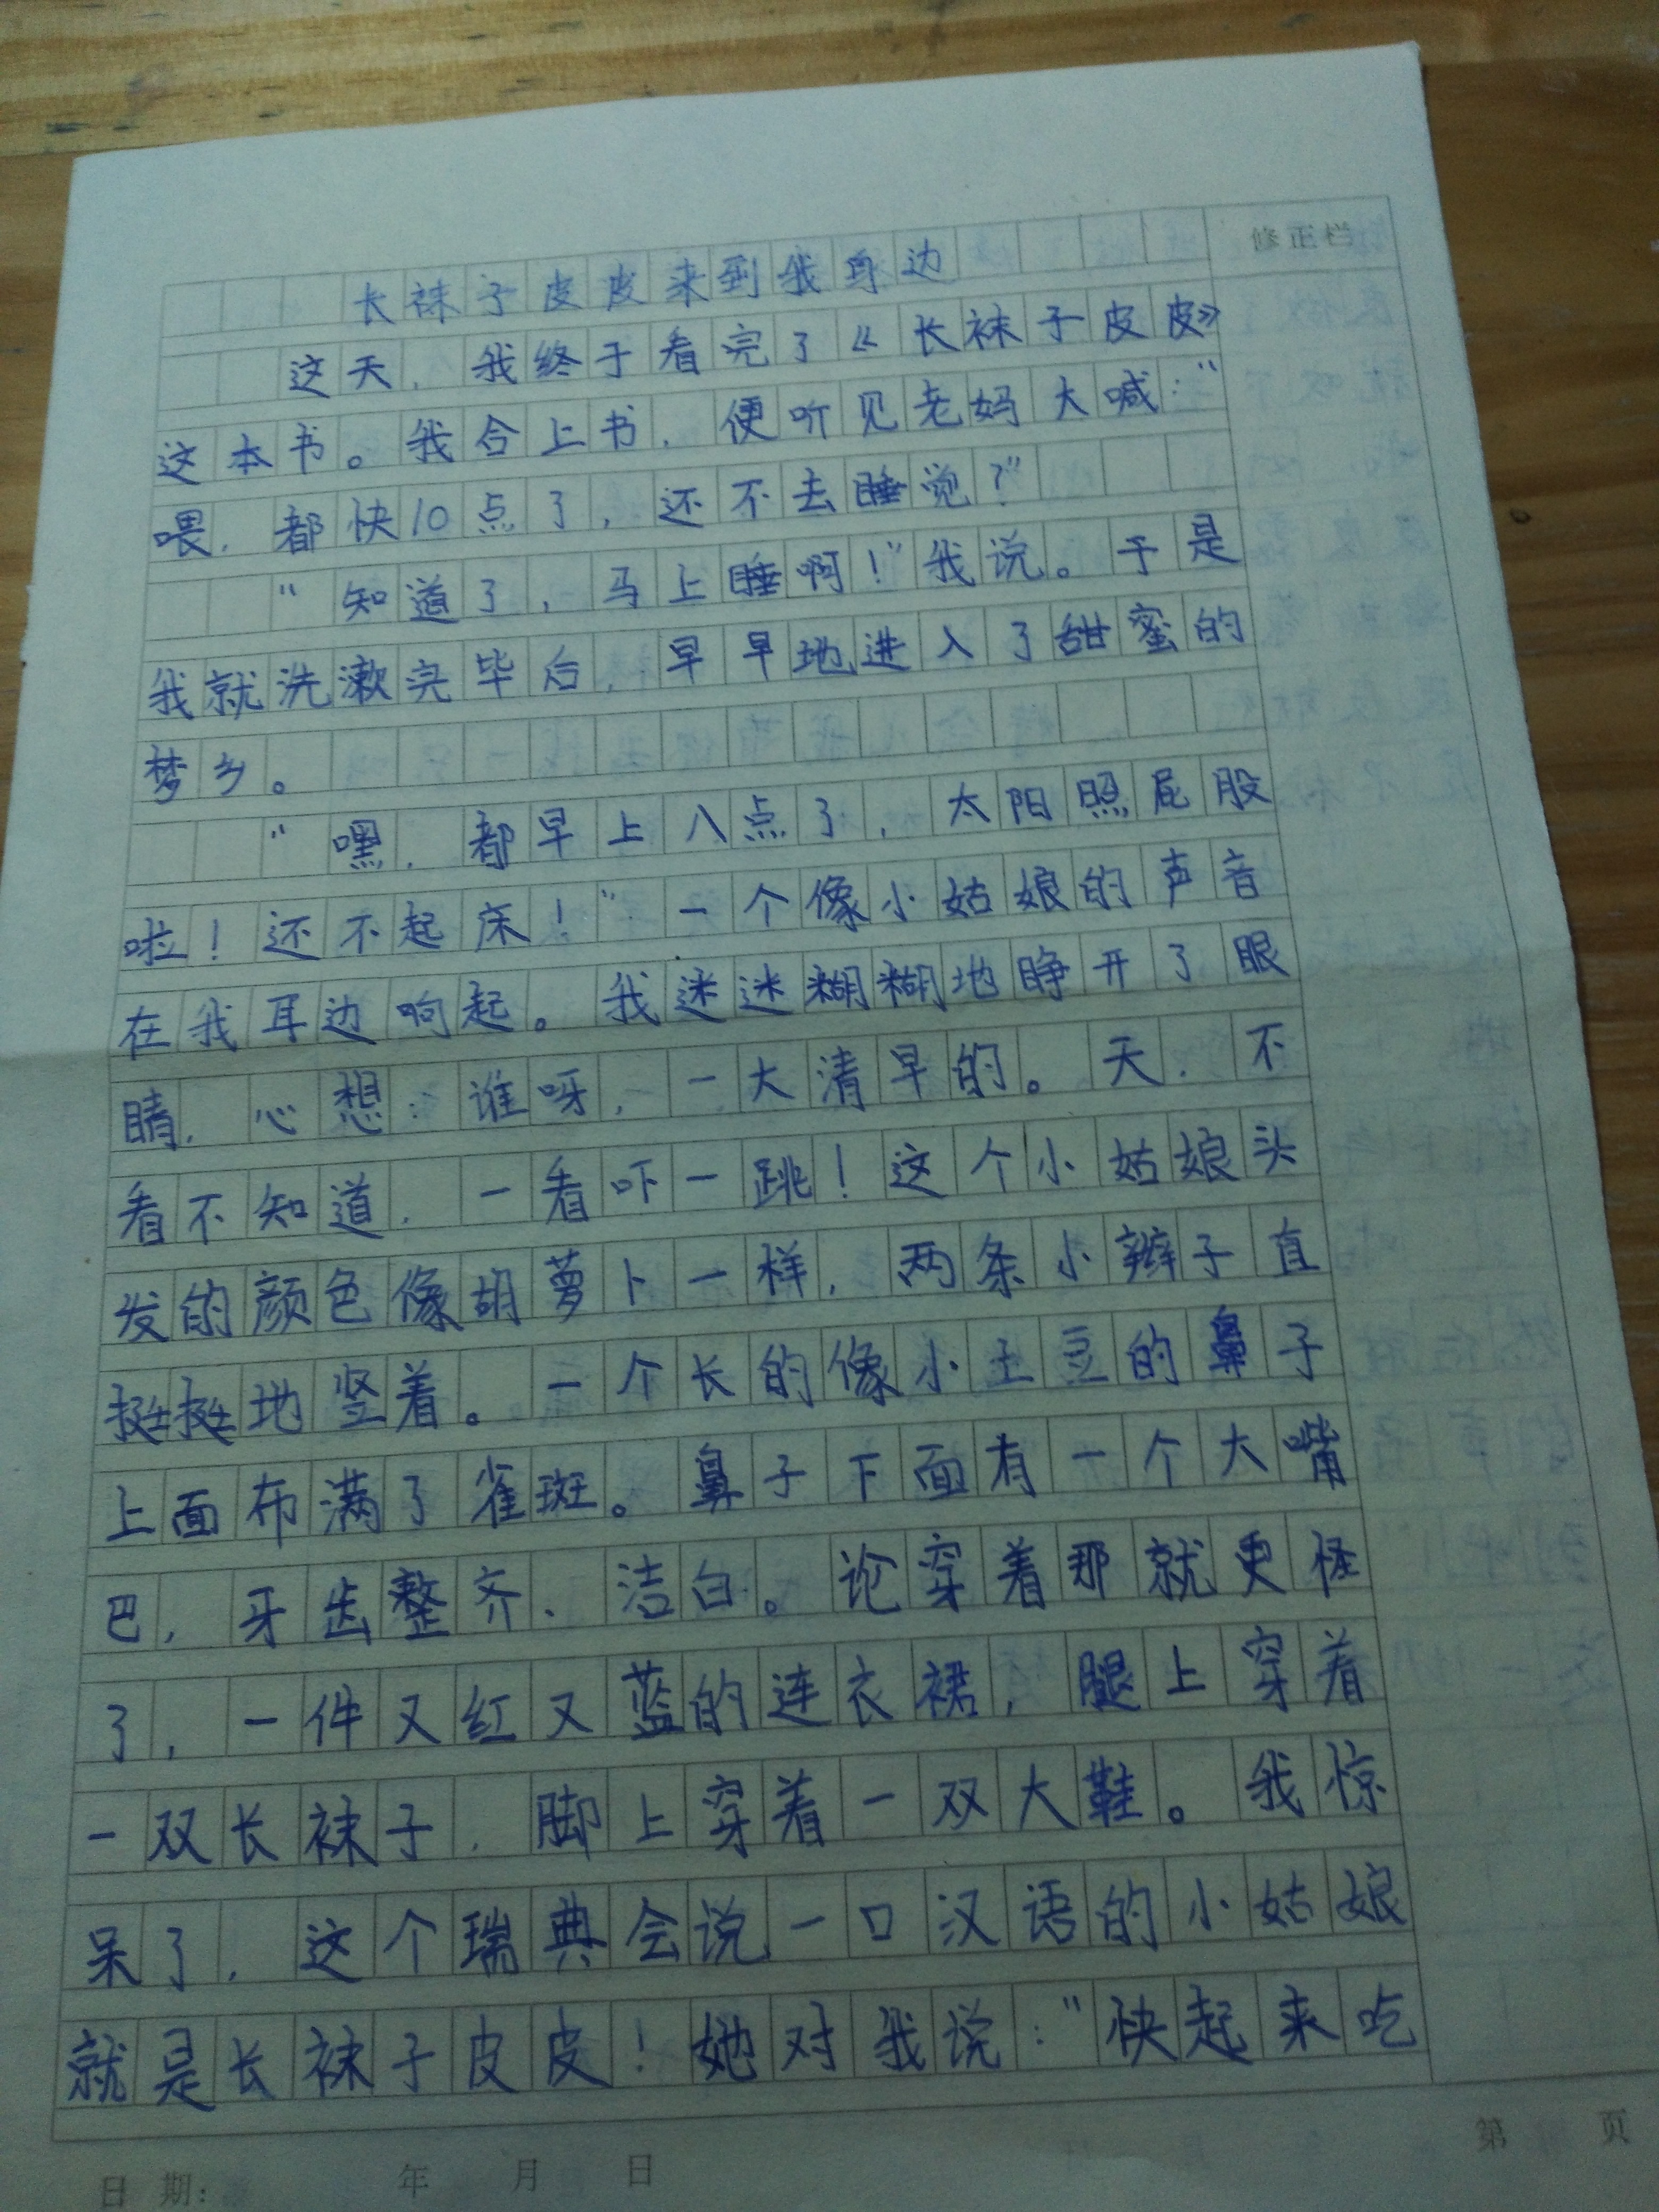 修正栏
长袜子皮皮来到我身边
这天，我终于看完了《长袜子皮皮》
这本书。我合上书，便听见老妈大喊：“
喂，都快10点了，还不去睡觉？”
“知道了，马上睡啊！”我说。于是
我就洗漱完毕后，早早地进入了甜蜜的
梦乡。
“嘿，都早上八点了，太阳照屁股
啦！还不起床！”一个像小姑娘的声音
在我耳边响起。我迷迷糊糊地睁开了眼
睛，心想：谁呀，一大清早的。天，不
看不知道，一看吓一跳！这个小姑娘头
发的颜色像胡萝卜一样，两条小辫子直
挺挺地竖着。一个长的像小土豆的鼻子
上面布满了雀斑。鼻子下面有一个大嘴
巴，牙齿整齐、洁白。论穿着那就更怪
了，一件又红又蓝的连衣裙，腿上穿着
一双长袜子，脚上穿着一双大鞋。我惊
呆了，这个瑞典会说一口汉语的小姑娘
就是长袜子皮皮！她对我说：“快起来吃
第 页
日 期： 年 月 日